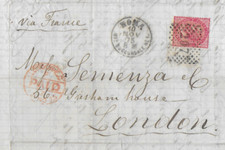 via France
ROMA
Semenza & C
56. Gresham house
London
PAID